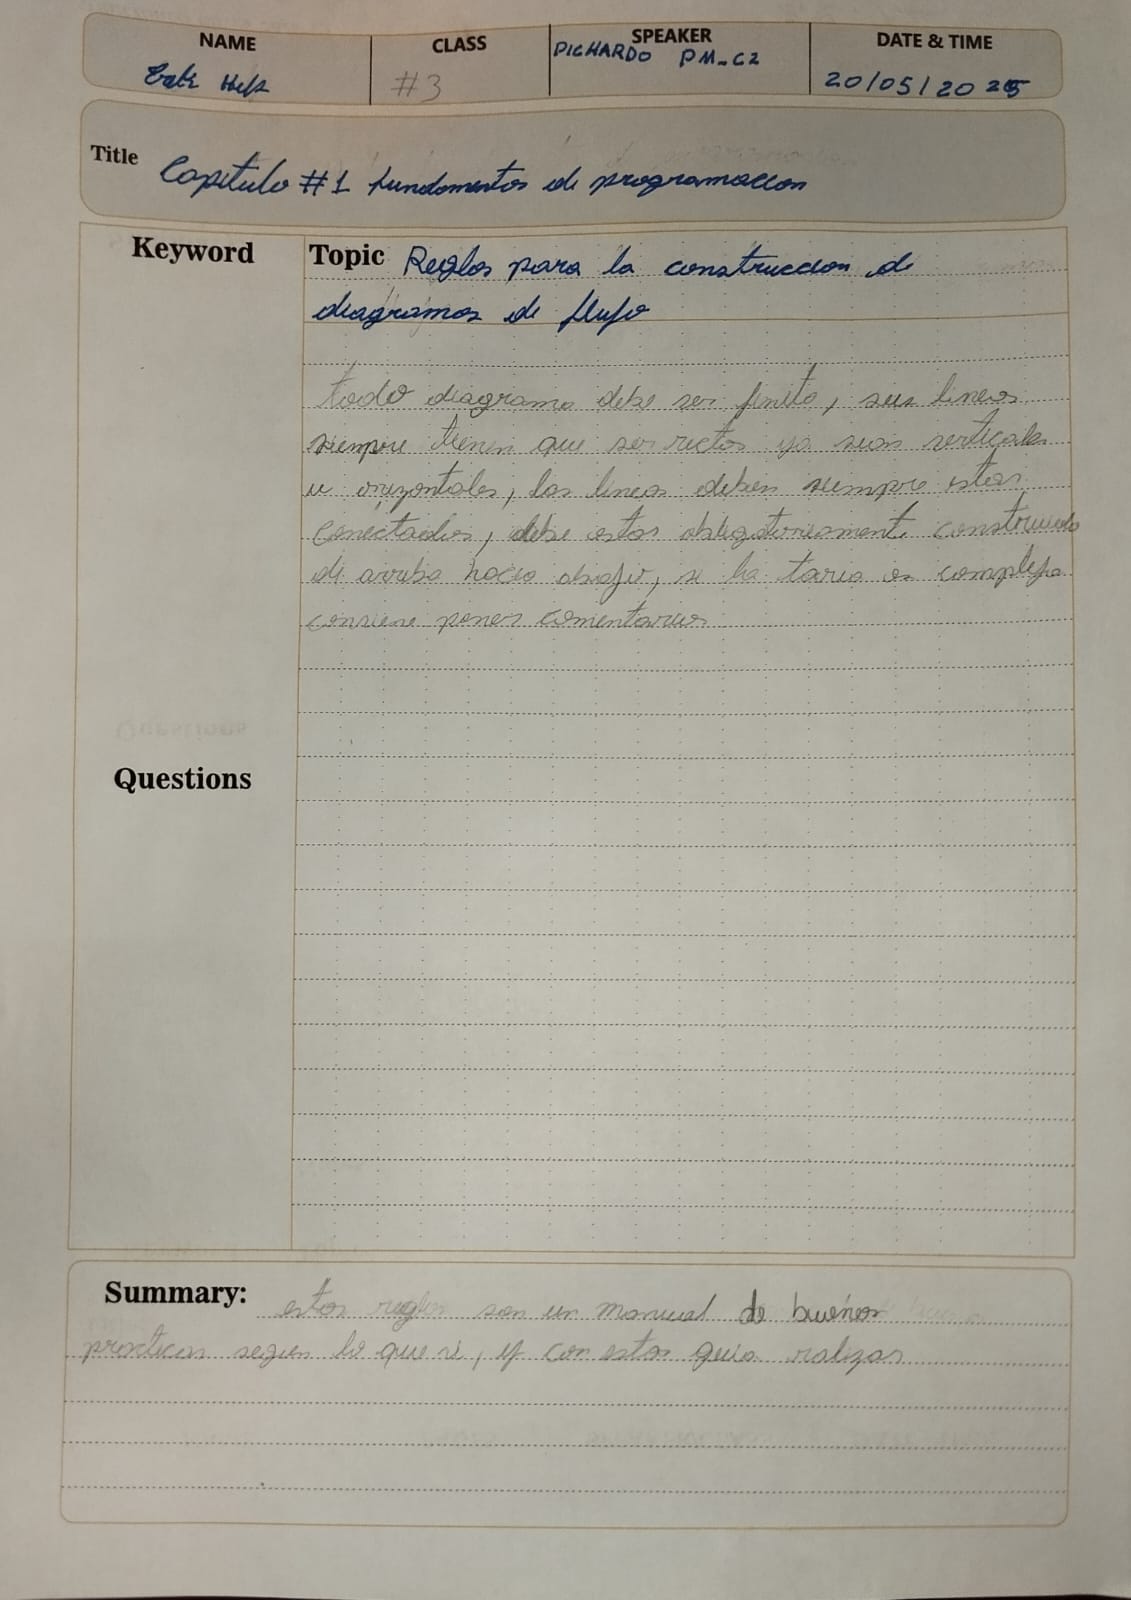 NAME CLASS SPEAKER DATE & TIME
#3 PICHARDO PM-C2 20/05/2025
Title Capitulo #1 fundamentos de programacion
Keyword Topic Reglas para la construccion de
diagramas de flujo
todo diagrama debe ser finito, sus lineas
siempre tienen que ser rectas ya sean verticales
u orizontales, las lineas deben siempre estar
conectados, debe estar obligatoriamente construido
de arriba hacia abajo, si la tarea es compleja
conviene poner comentarios
Questions
Summary: estas reglas son un manual de buenas
practicas segun lo que vi, y con esta guia realizar